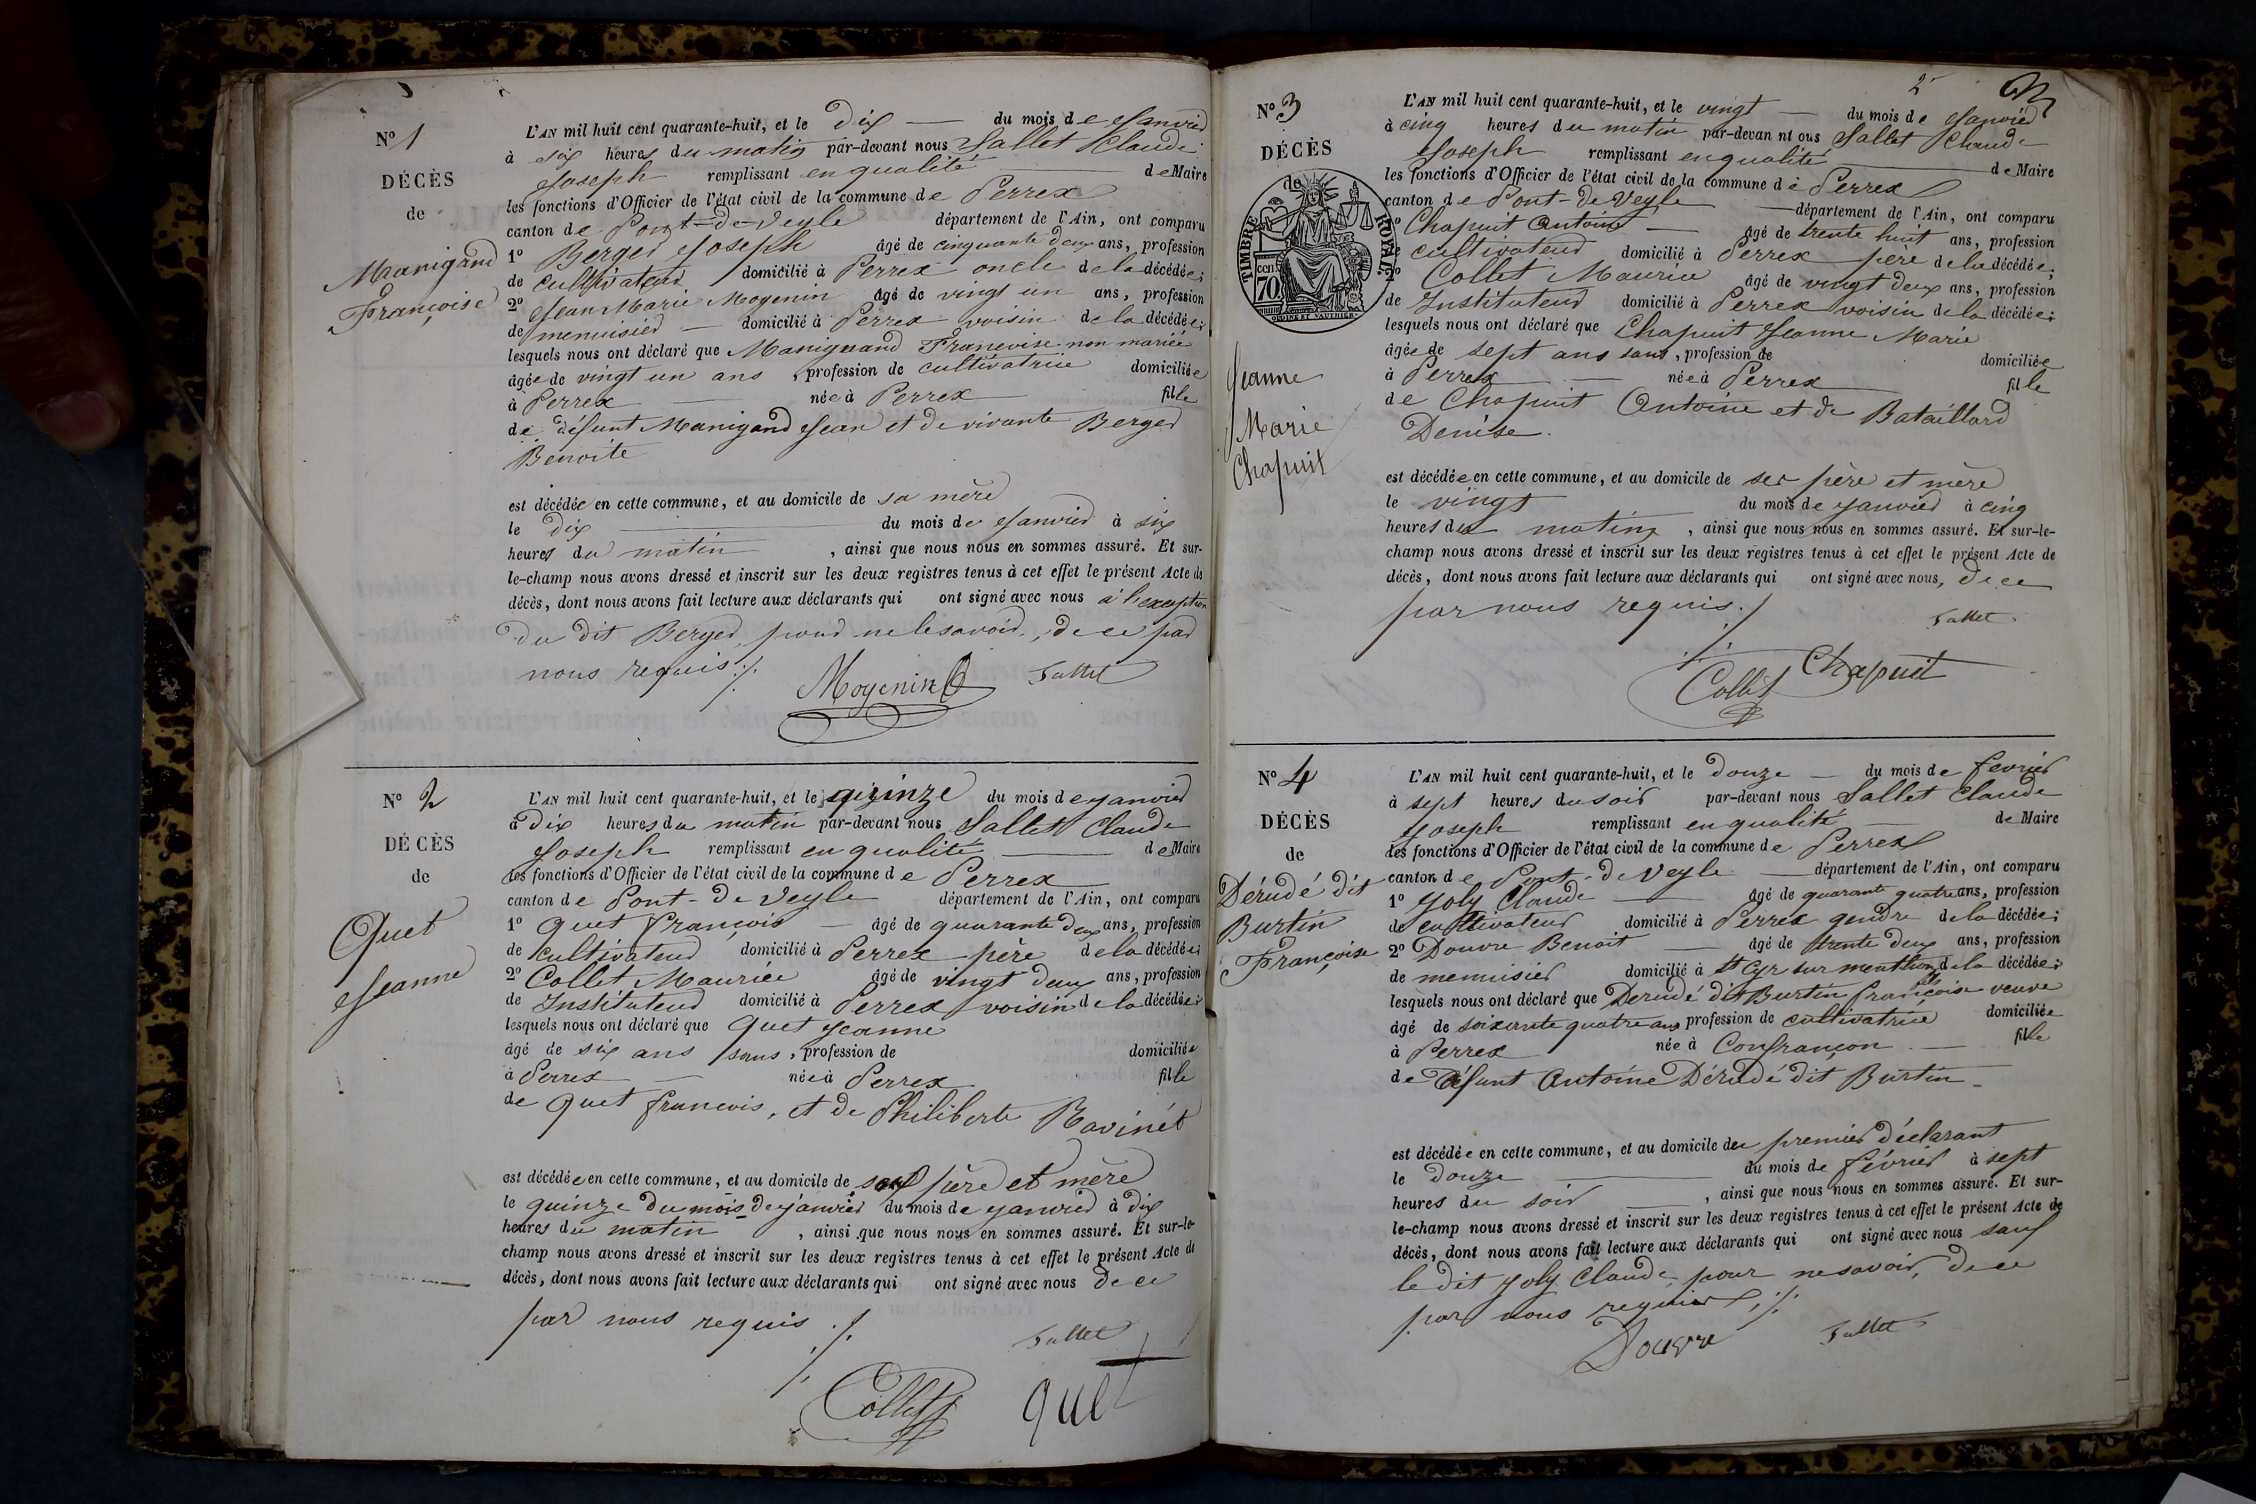 N° 1
DÉCÈS
de
Manigand
Françoise
L'AN mil huit cent quarante-huit, et le dix du mois de Janvier
à six heures du matin par-devant nous Sallet Claude
Joseph remplissant en qualité de Maire
les fonctions d'Officier de l'état civil de la commune de Perrex
canton de Pont-de-Veyle département de l'Ain, ont comparu
1° Berger Joseph âgé de cinquante deux ans, profession
de cultivateur domicilié à Perrex oncle de la décédée;
2° Jean Marie Moyenin âgé de vingt un ans, profession
de menuisier domicilié à Perrex voisin de la décédée;
lesquels nous ont déclaré que Manigand Françoise non mariée
âgée de vingt un ans, profession de cultivatrice domiciliée
à Perrex née à Perrex fille
de défunt Manigand Jean et de vivante Berger
Benoite
est décédée en cette commune, et au domicile de sa mère
le dix du mois de Janvier à six
heures du matin, ainsi que nous nous en sommes assuré. Et sur-
le-champ nous avons dressé et inscrit sur les deux registres tenus à cet effet le présent Acte de
décès, dont nous avons fait lecture aux déclarants qui ont signé avec nous à l'exception
du dit Berger pour ne le savoir, de ce par
nous requis ./.
Moyenin Sallet
N° 2
DÉCÈS
de
Quet
Jeanne
L'AN mil huit cent quarante-huit, et le quinze du mois de janvier
à dix heures du matin par-devant nous Sallet Claude
Joseph remplissant en qualité de Maire
les fonctions d'Officier de l'état civil de la commune de Perrex
canton de Pont-de-Veyle département de l'Ain, ont comparu
1° Quet François âgé de quarante deux ans, profession
de cultivateur domicilié à Perrex père de la décédée;
2° Collet Maurice âgé de vingt deux ans, profession
de Instituteur domicilié à Perrex voisin de la décédée;
lesquels nous ont déclaré que Quet Jeanne
âgé de six ans sans, profession de domiciliée
à Perrex née à Perrex fille
de Quet François, et de Philiberte Ravinet
est décédée en cette commune, et au domicile de ses père et mère
le quinze du mois de janvier du mois de janvier à dix
heures du matin, ainsi que nous nous en sommes assuré. Et sur-le-
champ nous avons dressé et inscrit sur les deux registres tenus à cet effet le présent Acte de
décès, dont nous avons fait lecture aux déclarants qui ont signé avec nous de ce
par nous requis ./.
Sallet
Collet Quet
2
N° 3
DÉCÈS
de
TIMBRE ROYAL
cen. 70
Jeanne
Marie
Chapuit
L'AN mil huit cent quarante-huit, et le vingt du mois de Janvier
à cinq heures du matin par-devan nt ous Sallet Claude
Joseph remplissant en qualité de Maire
les fonctions d'Officier de l'état civil de la commune de Perrex
canton de Pont-de-Veyle département de l'Ain, ont comparu
1° Chapuit Antoine âgé de trente huit ans, profession
de cultivateur domicilié à Perrex père de la décédée;
2° Collet Maurice âgé de vingt deux ans, profession
de Instituteur domicilié à Perrex voisin de la décédée;
lesquels nous ont déclaré que Chapuit Jeanne Marie
âgée de sept ans sans, profession de domiciliée
à Perrex née à Perrex fille
de Chapuit Antoine et de Bataillard
Denise.
est décédée en cette commune, et au domicile de ses père et mère
le vingt du mois de janvier à cinq
heures du matin, ainsi que nous nous en sommes assuré. Et sur-le-
champ nous avons dressé et inscrit sur les deux registres tenus à cet effet le présent Acte de
décès, dont nous avons fait lecture aux déclarants qui ont signé avec nous, de ce
par nous requis ./.
Sallet
Collet Chapuit
N° 4
DÉCÈS
de
Dérudé dit
Burtin
Françoise
L'AN mil huit cent quarante-huit, et le douze du mois de février
à sept heures du soir par-devant nous Sallet Claude
Joseph remplissant en qualité de Maire
les fonctions d'Officier de l'état civil de la commune de Perrex
canton de Pont-de-Veyle département de l'Ain, ont comparu
1° Joly Claude âgé de quarante quatre ans, profession
de cultivateur domicilié à Perrex gendre de la décédée;
2° Douvre Benoit âgé de trente deux ans, profession
de menuisier domicilié à St Cyr sur menthon de la décédée;
lesquels nous ont déclaré que Dérudé dit Burtin françoise veuve
âgé de soixante quatre ans profession de cultivatrice domiciliée
à Perrex née à Confrançon fille
de défunt Antoine Dérudé dit Burtin
est décédée en cette commune, et au domicile du premier déclarant
le douze du mois de février à sept
heures du soir, ainsi que nous nous en sommes assuré. Et sur-
le-champ nous avons dressé et inscrit sur les deux registres tenus à cet effet le présent Acte de
décès, dont nous avons fait lecture aux déclarants qui ont signé avec nous sauf
le dit Joly Claude pour ne savoir, de ce
par nous requis ./.
Douvre Sallet